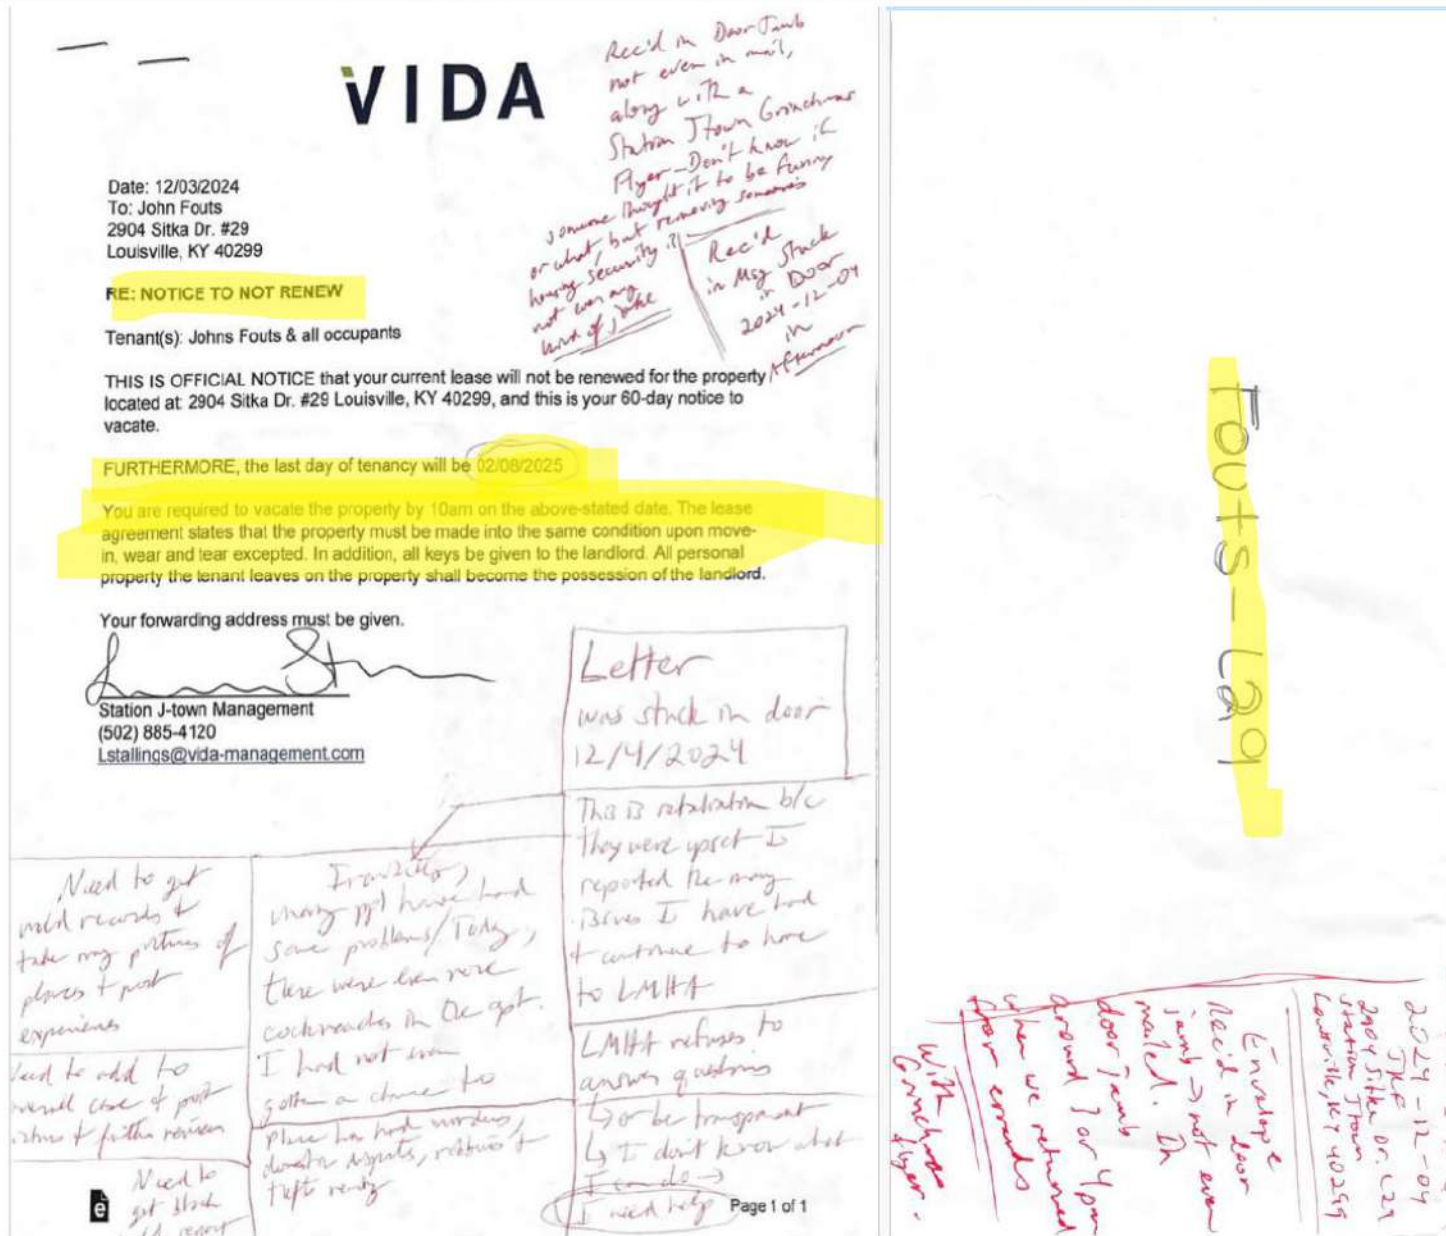 VIDA
Rec'd in Door Jamb
not even in mail,
along with a
Station Jtown Grinchmas
Flyer - Don't know if
someone thought it to be funny
or what, but removing someone's
housing security is
not even any
kind of joke
Rec'd
in Msg Stuck
in Door
2024-12-04
in
Afternoon
Date: 12/03/2024
To: John Fouts
2904 Sitka Dr. #29
Louisville, KY 40299
RE: NOTICE TO NOT RENEW
Tenant(s): Johns Fouts & all occupants
THIS IS OFFICIAL NOTICE that your current lease will not be renewed for the property
located at: 2904 Sitka Dr. #29 Louisville, KY 40299, and this is your 60-day notice to
vacate.
FURTHERMORE, the last day of tenancy will be 02/08/2025
You are required to vacate the property by 10am on the above-stated date. The lease
agreement states that the property must be made into the same condition upon move-
in, wear and tear excepted. In addition, all keys be given to the landlord. All personal
property the tenant leaves on the property shall become the possession of the landlord.
Your forwarding address must be given.
Station J-town Management
(502) 885-4120
Lstallings@vida-management.com
Letter
was stuck in door
12/4/2024
This is retaliation b/c
they were upset I
reported the many
issues I have had
+ continue to have
to LMHA
LMHA refuses to
answer questions
↳ or be transparent
↳ I don't know what
I can do →
I need help
many ppl have had
same problems/Today,
there were even more
cockroaches in the apt.
I had not even
gotten a chance to
place has had murders,
domestic disputes, robberies +
thefts
Need to get
records +
take my pictures of
places + past
experiences
need to add to
overall case of past
+ further
Need to
get
report
e
Page 1 of 1
Fouts - L29
2024-12-04
JRF
2904 Sitka Dr. L29
Station Jtown
Louisville, KY 40299
Envelope
Rec'd in door
jamb → not even
mailed. In
door jamb
around 3 or 4 pm
when we returned
from errands
with
Grinchmas
flyer.